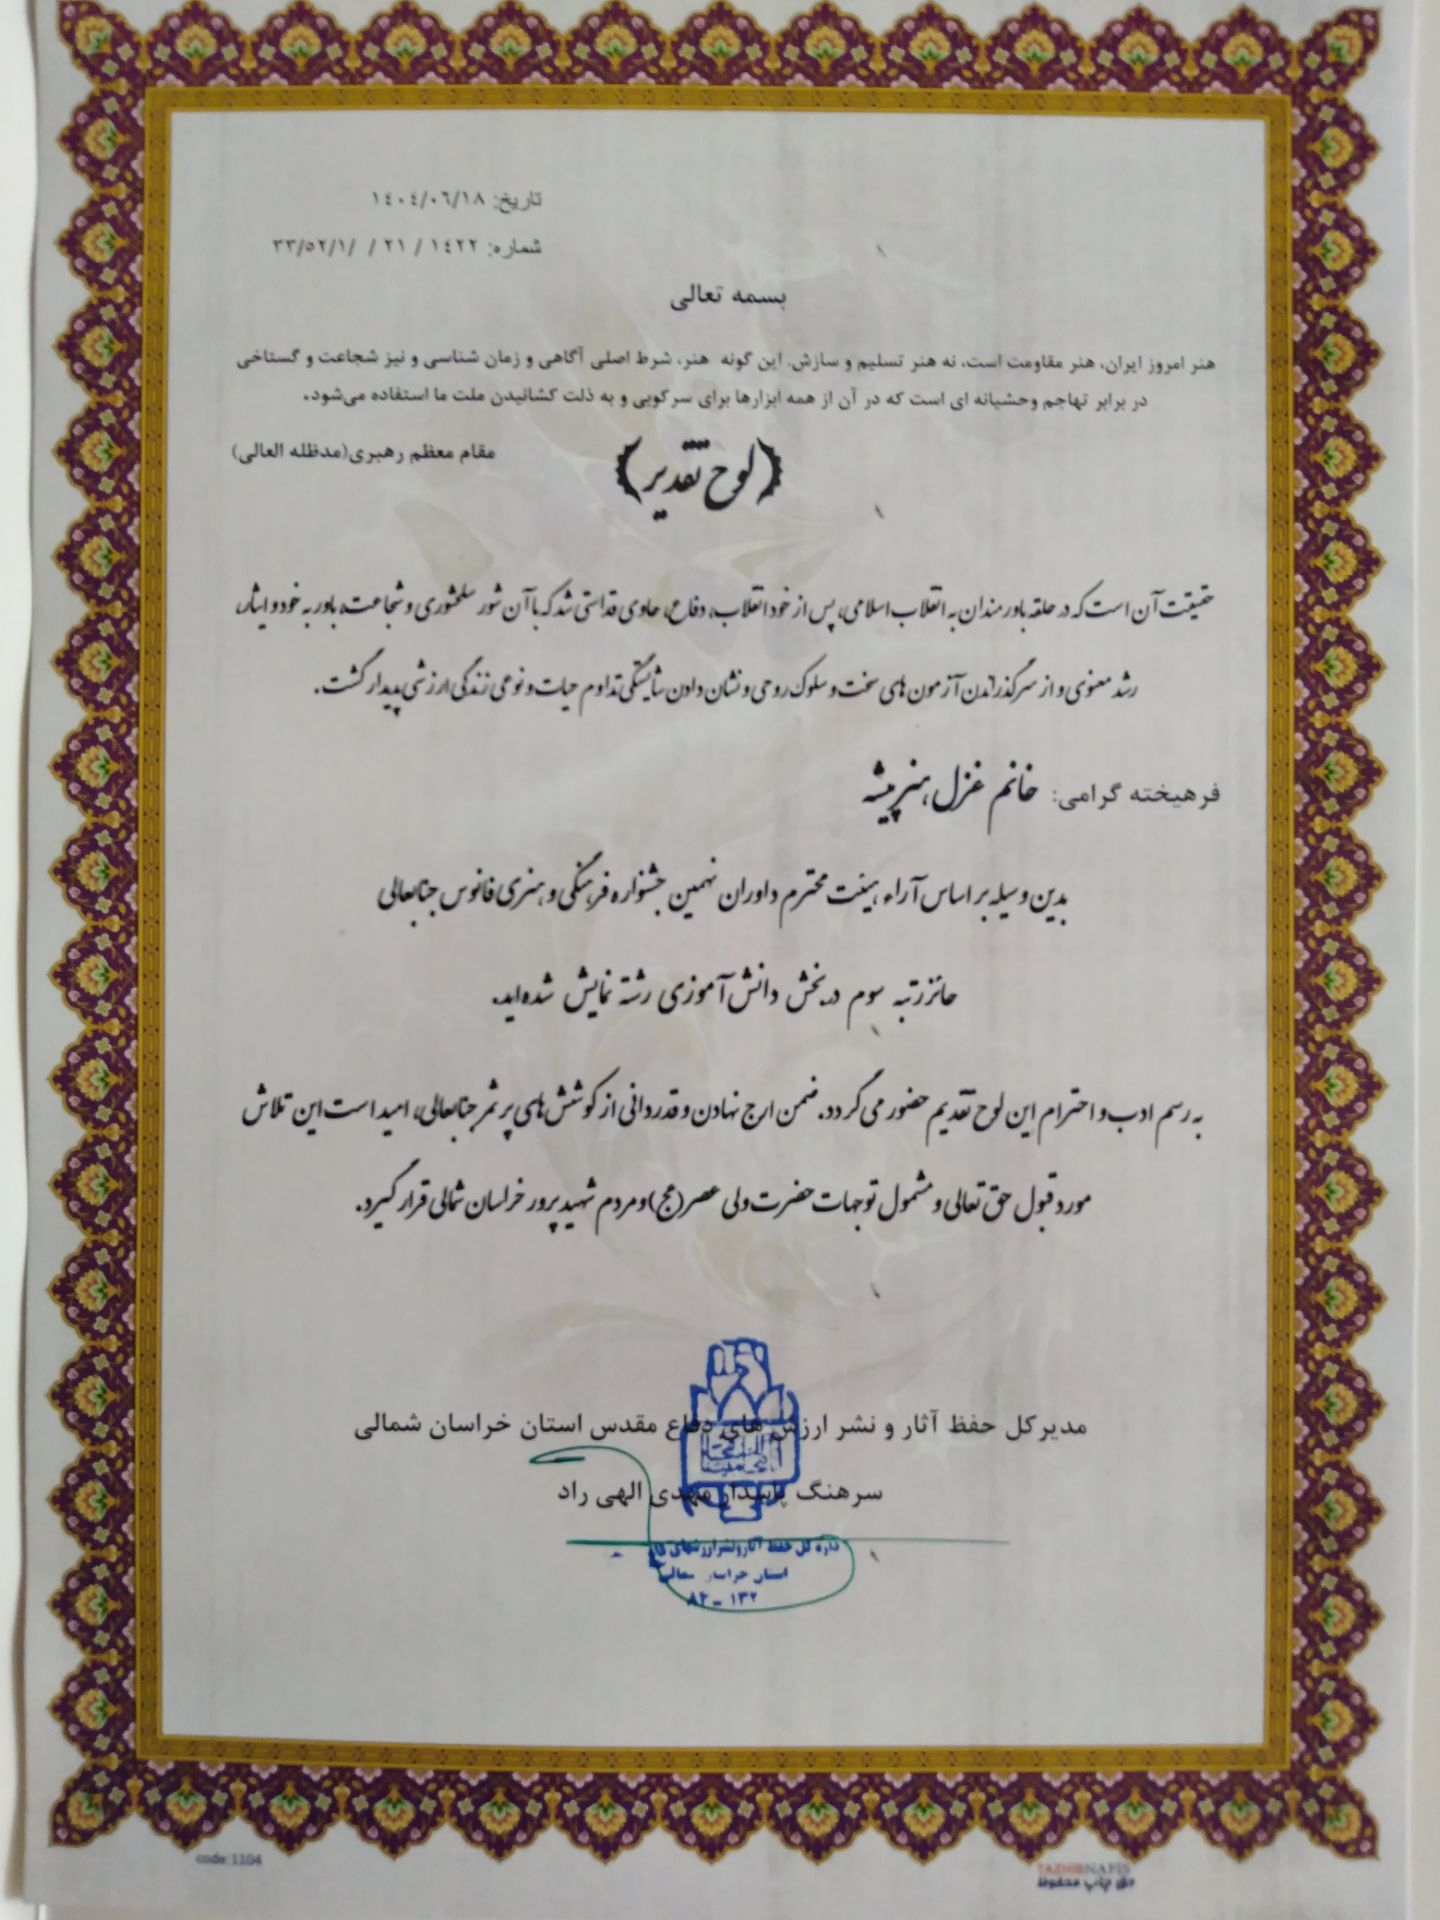 تاریخ: ۱٤۰٤/۰٦/۱۸
شماره: ۱٤۲۲ / ۲۱ / /۳۳/٥۲/۱
بسمه تعالی
هنر امروز ایران، هنر مقاومت است، نه هنر تسلیم و سازش. این گونه هنر، شرط اصلی آگاهی و زمان شناسی و نیز شجاعت و گستاخی
در برابر تهاجم وحشیانه ای است که در آن از همه ابزارها برای سرکوبی و به ذلت کشانیدن ملت ما استفاده می‌شود.
مقام معظم رهبری(مدظله العالی)
(لوح تقدیر)
حقیقت آن است که در حلقه باورمندان به انقلاب اسلامی، پس از خود انقلاب، دفاع، حاوی قداستی شد که با آن شور سلحشوری و شجاعت، باور به خود و ایثار،
رشد معنوی و از سر گذراندن آزمون های سخت و سلوک روحی و نشان دادن شایستگی تداوم حیات و نوعی زندگی ارزشی پدیدار گشت.
فرهیخته گرامی: خانم غزل هنرپیشه
بدین وسیله بر اساس آراء هیئت محترم داوران نهمین جشنواره فرهنگی و هنری فانوس جنابعالی
حائز رتبه سوم در بخش دانش آموزی رشته نمایش شده اید.
به رسم ادب و احترام این لوح تقدیم حضور می گردد. ضمن ارج نهادن و قدردانی از کوشش های پر ثمر جنابعالی، امید است این تلاش
مورد قبول حق تعالی و مشمول توجهات حضرت ولی عصر(عج) و مردم شهید پرور خراسان شمالی قرار گیرد.
مدیرکل حفظ آثار و نشر ارزش های دفاع مقدس استان خراسان شمالی
سرهنگ پاسدار مهدی الهی راد
اداره کل حفظ آثار و نشر ارزشهای
استان خراسان شمالی
۸۲ - ۱۳۲
code:1104
TAZHIBNAFIS
حق چاپ محفوظ